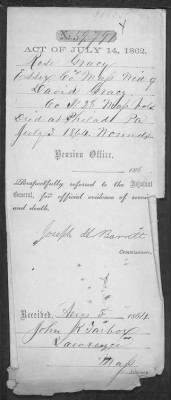 ACT OF JULY 14, 1862.
Rose Gracy
Essex Co Mass Wid of
David Gracy
Co 28 Mass Vols
Died at Philada Pa
July 3 1864 Wounds
Pension Office,
186
Respectfully referred to the Adjutant
General, for official evidence of service
and death.
Joseph H Barrett
Commissioner.
Received, Aug 5 1864.
John K Tarbox
Lawrence
Mass